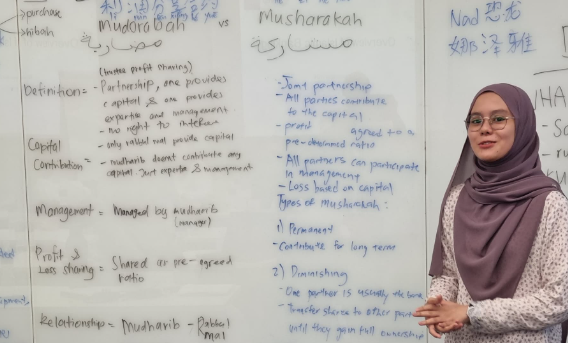 purchase
hibah
利润分享合约
Mudarabah vs Musharakah
مضاربة
مشاركة
(profit sharing)
Definition = - Partnership, one provides
capital & one provides
expertise and management
- no right to
Capital
Contribution = - only rabbul mal provide capital
- mudharib doesnt contribute any
capital. Just expertise & management
Management = Managed by mudharib
(manager)
Profit &
Loss sharing = Shared at pre-agreed
ratio
Relationship = Mudharib - Rabbul
mal
- Joint partnership
- All parties contribute
to the capital
- profit agreed to a
pre-determined ratio
- All partners can participate
in management
- Loss based on capital
Types of musharakah :
1) Permanent
- Contribute for long term
2) Diminishing
- One partner is usually the
- Transfer shares to other
until they gain full ownership
Nad 恐龙
娜泽雅